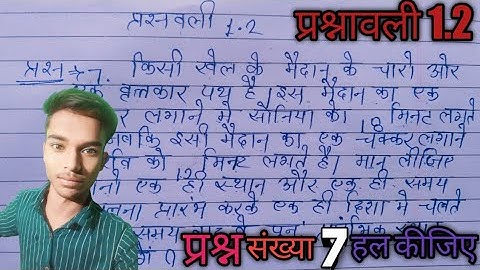 प्रश्नावली 1.2
प्रश्नावली 1.2
प्रश्न 7. किसी खेल के मैदान के चारो ओर
एक वृत्तकार पथ है। इस मैदान का एक
लगाने में सोनिया को 18 मिनट लगते
जबकि इसी मैदान का एक चक्कर लगाने
को 12 मिनट लगते है। मान लीजिए
एक ही स्थान और एक ही समय
प्रारंभ करके एक ही दिशा मे चलते
समय
प्रश्न संख्या 7 हल कीजिए